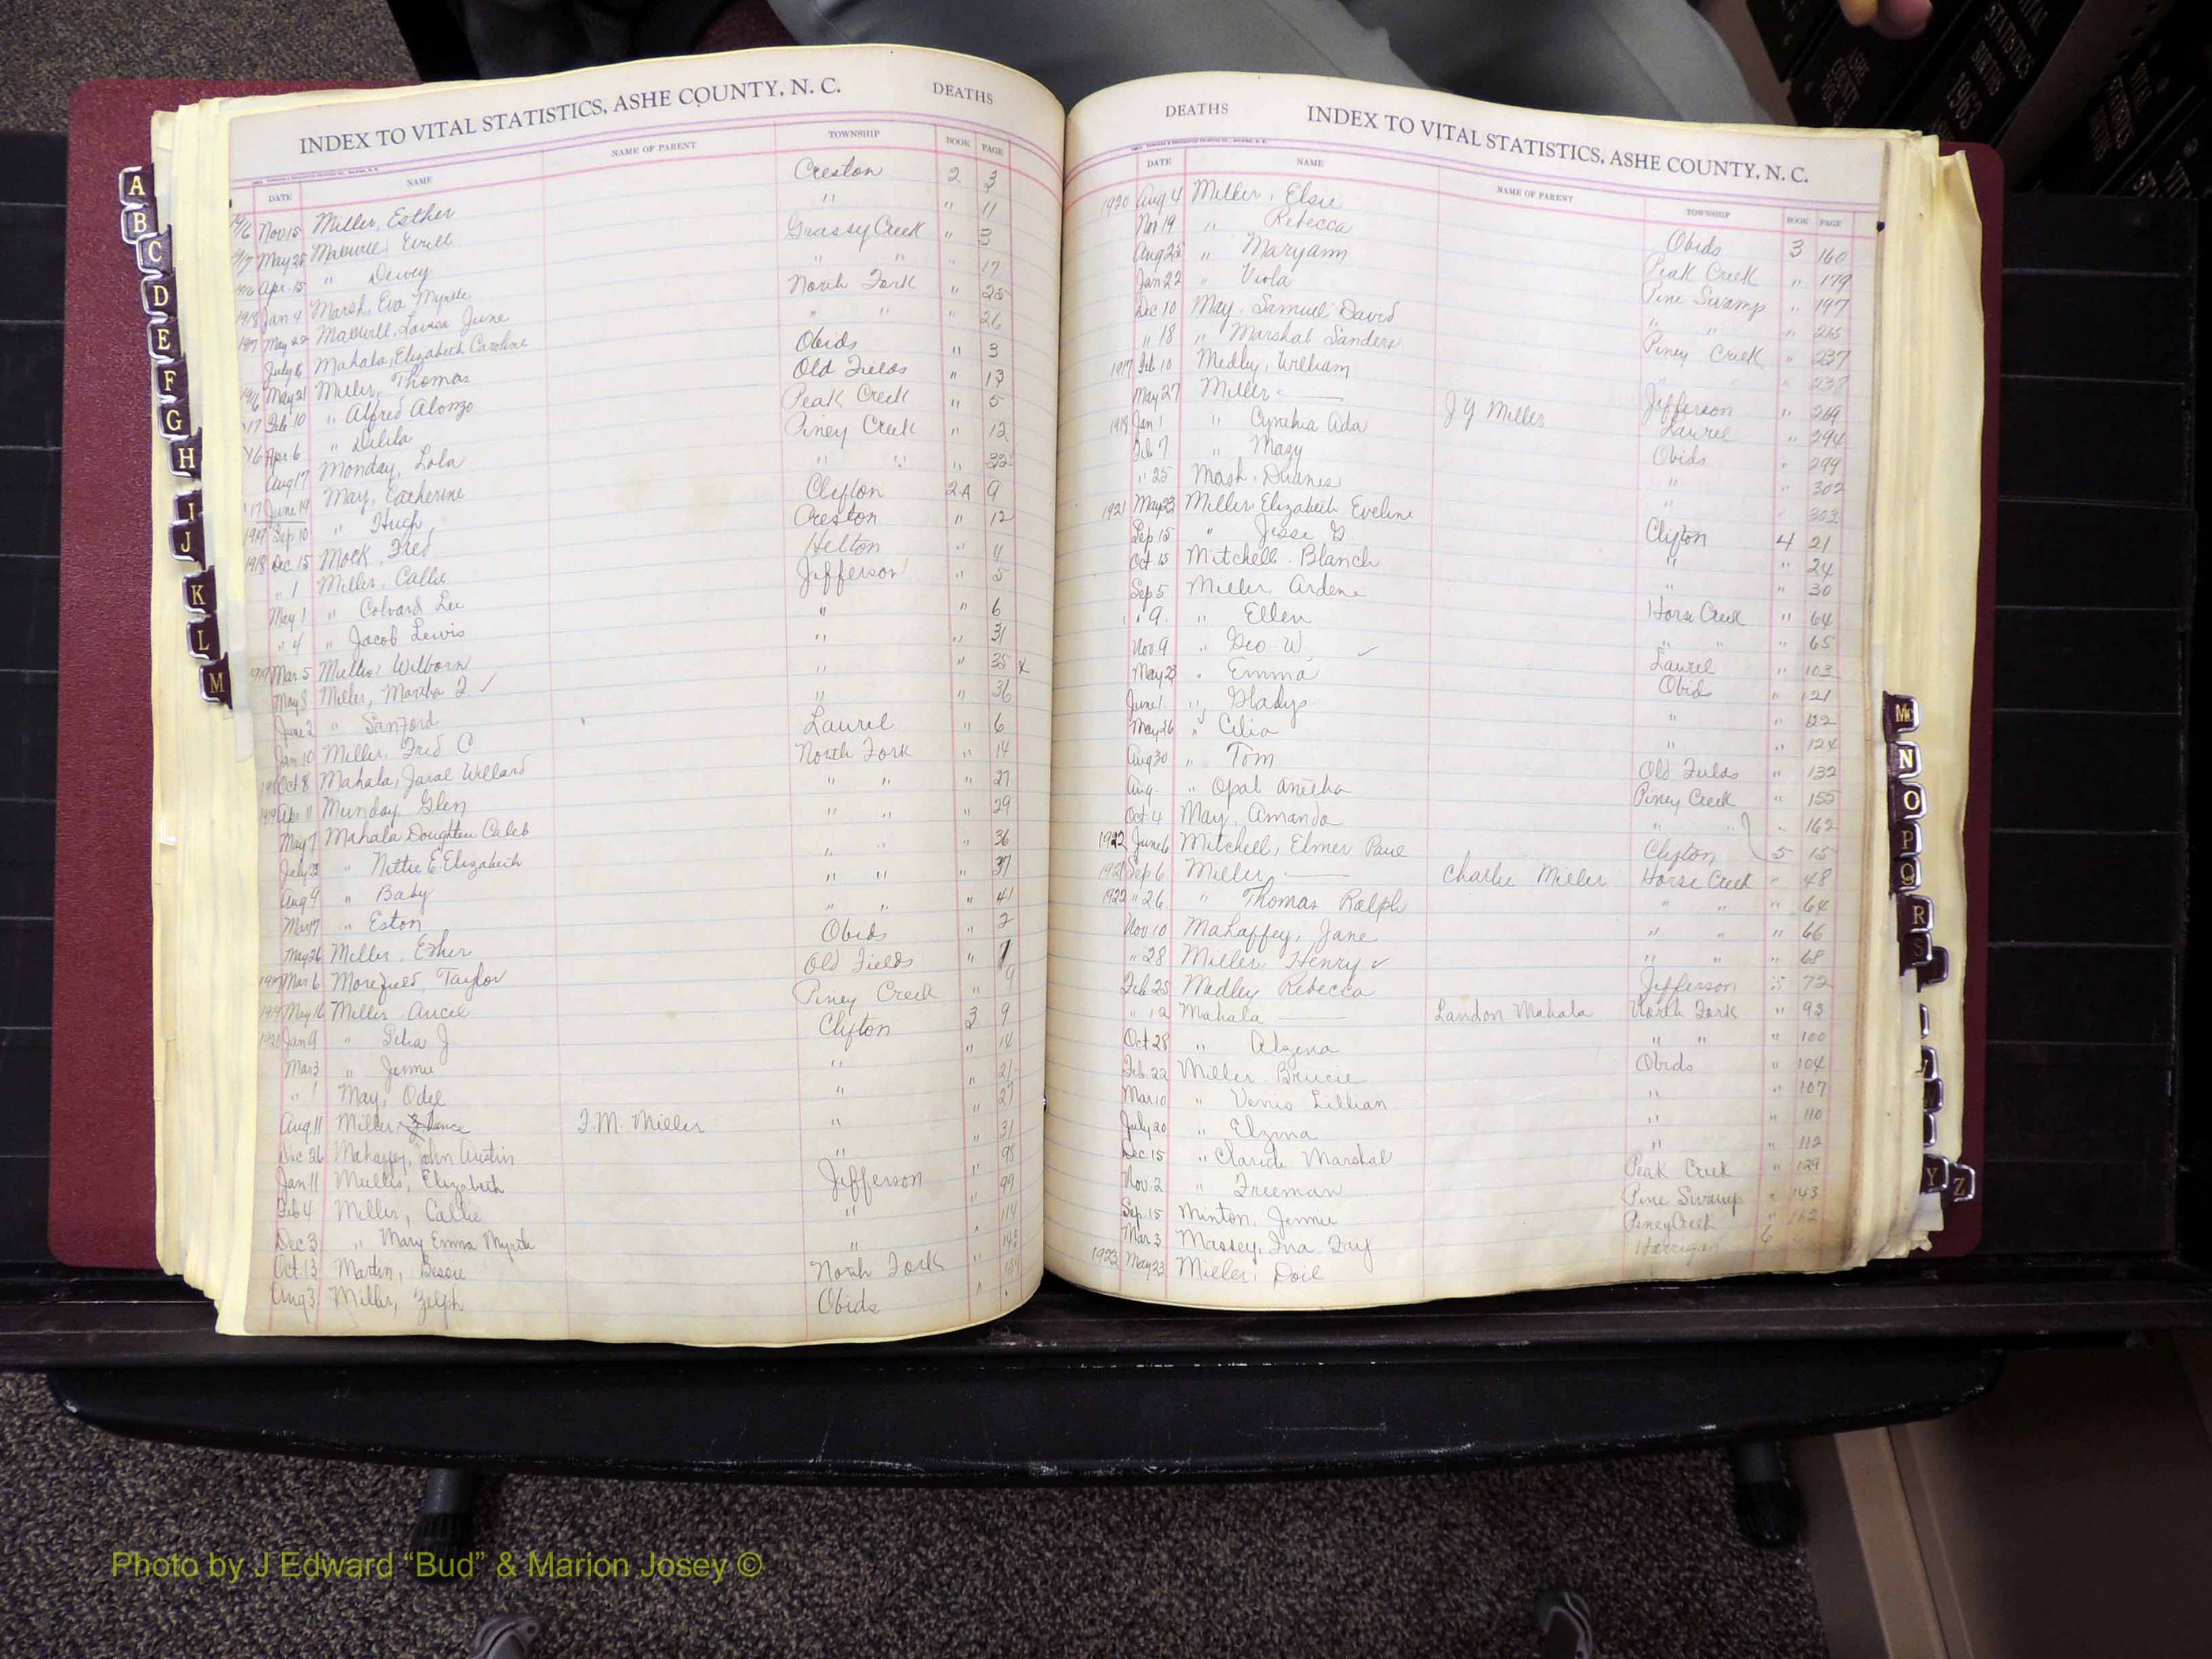 INDEX TO VITAL STATISTICS, ASHE COUNTY, N. C. DEATHS
DATE NAME NAME OF PARENT TOWNSHIP BOOK PAGE
1916 Nov 15 Miller, Esther Creston 2 3
1917 May 25 " " 11
1916 Apr. 15 " Dewey Grassy Creek " 3
1918 Jan 4 Marsh, Eva Myrtle " " " 17
1917 May 22 Louisa June North Fork " 25
July 6 Mahala, Elizabeth Caroline " " " 26
1916 May 21 Miller, Thomas Obids " 3
17 Feb 10 " Alfred Alonzo Old Fields " 13
16 Apr 6 " Delila Peak Creek " 5
Aug 17 Monday, Lola Piney Creek " 12
17 June 19 May, Catherine " " " 32
Sep 10 " Hugh Clifton 2A 9
1918 Dec 15 Mock, Fred Creston " 12
" 1 Miller, Callie Helton " 11
May 1 " Colvard Lee Jefferson " 5
" 4 " Jacob Lewis " " 6
1919 Mar 5 Wilborn " " 31
May 8 Miller, Martha J. ✓ " " 35 x
June 2 " Sanford " " 36
Jan 10 Miller, Fred C Laurel " 6
Oct 8 Mahala, Jaral Willard North Fork " 14
1919 Apr 11 Munday, Glen " " " 27
May 7 Mahala Doughton Caleb " " " 29
July 23 " Nettie E Elizabeth " " " 36
Aug 9 " Baby " " " 37
Mar 17 " Eston " " " 41
May 26 Miller, Esther Obids " 2
Mar 6 Morefield, Taylor Old Fields "
1919 May 16 Miller Piney Creek " 9
1920 Jan 9 " J Clifton 3 9
Mar 3 " Jennie " " 14
" 1 May, Odel " " 21
Aug 11 Miller, J.M. Miller " " 27
Dec 26 Mahaffey, John Austin " " 31
Jan 11 Elizabeth Jefferson " 98
Feb 4 Miller, Callie " " 99
Dec 3 " Mary Emma Myrtle " " 114
Oct 13 Martin, Bessie North Fork " 143
Aug 3 Miller, Zelph Obids "
DEATHS INDEX TO VITAL STATISTICS, ASHE COUNTY, N. C.
DATE NAME NAME OF PARENT TOWNSHIP BOOK PAGE
1920 Aug 4 Miller, Elsie Obids 3 160
Nov 19 " Rebecca Peak Creek " 179
Aug 25 " Maryann Pine Swamp " 197
Jan 22 " Viola " " " 215
Dec 10 May, Samuel David Piney Creek " 237
" 18 " Marshal Sanders " " " 238
1917 Feb 10 Medley, William Jefferson " 269
May 27 Miller — J Y Miller Laurel " 294
1919 Jan 1 " Cynthia Ada Obids " 299
Feb 7 " Mazy " " 302
" 25 Mash, " " 303
1921 May 23 Miller Elizabeth Eveline Clifton 4 21
Sep 15 " Jesse G " " 24
Oct 15 Mitchell, Blanch " " 30
Sep 5 Miller, Ardene Horse Creek " 64
" 9 " Ellen " " " 65
Nov 9 " Geo W. ✓ Laurel " 103
May 23 " Emma Obids " 121
June 1 " Gladys " " 122
May 26 " Celia " " 124
Aug 30 " Tom Old Fields " 132
Aug. " Opal Aneitha Piney Creek " 155
Oct 4 May, Amanda " " " 162
1922 June 6 Mitchell, Elmer Paul Clifton 5 15
1921 Sep 6 Miller — Charlie Miller Horse Creek " 48
1922 " 26 " Thomas Ralph " " " 64
Nov 10 Mahaffey, Jane " " " 66
" 28 Miller, Henry ✓ " " " 68
Feb 25 Medley Rebecca Jefferson " 72
" 12 Mahala — Landon Mahala North Fork " 93
Oct 28 " Alzena " " " 100
Feb. 22 Miller Brucie Obids " 104
Mar 10 " Venis Lillian " " 107
July 20 " Elzena " " 110
Dec 15 " Marshal " " 112
Nov. 2 " Freeman Peak Creek " 129
Sep. 15 Minton, Jennie Pine Swamp " 143
Mar 3 Massey, Ina Fay Piney Creek " 162
1923 May 23 Miller, Doil Horrigan 6
A
B
C
D
E
F
G
H
I
J
K
L
M
Mc
N
O
P
Q
R
S
Y
Z
1963
Photo by J Edward “Bud” & Marion Josey ©